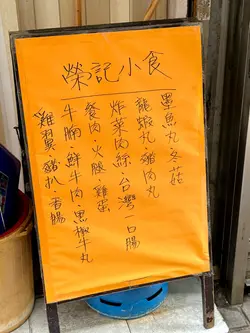 榮記小食
墨魚丸·冬菇
龍蝦丸·雞肉丸
炸菜肉絲·台灣一口腸
餐肉·火腿·雞蛋
牛腩·鮮牛肉·黑椒牛丸
雞翼·豬扒·香腸